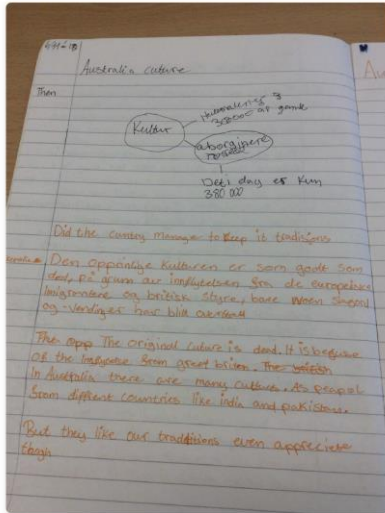 Australia cuture
Then
Kultur
aborginere
Deti dag er Kun
380 000
Did the cuntry manager to keep it tradisions
Den opprinlige Kulturen er som godt som
død, på grunn av innflytelsen fra de europeiske
og britisk styre, bare noen
og -verdinger har blitt
The opp The original cuture is dead. It is because
of the from great briden. The
In Australia there are many culture. As peopel
from diffrent countries like india and pakistan.
But they like our traditions even appreciete
though